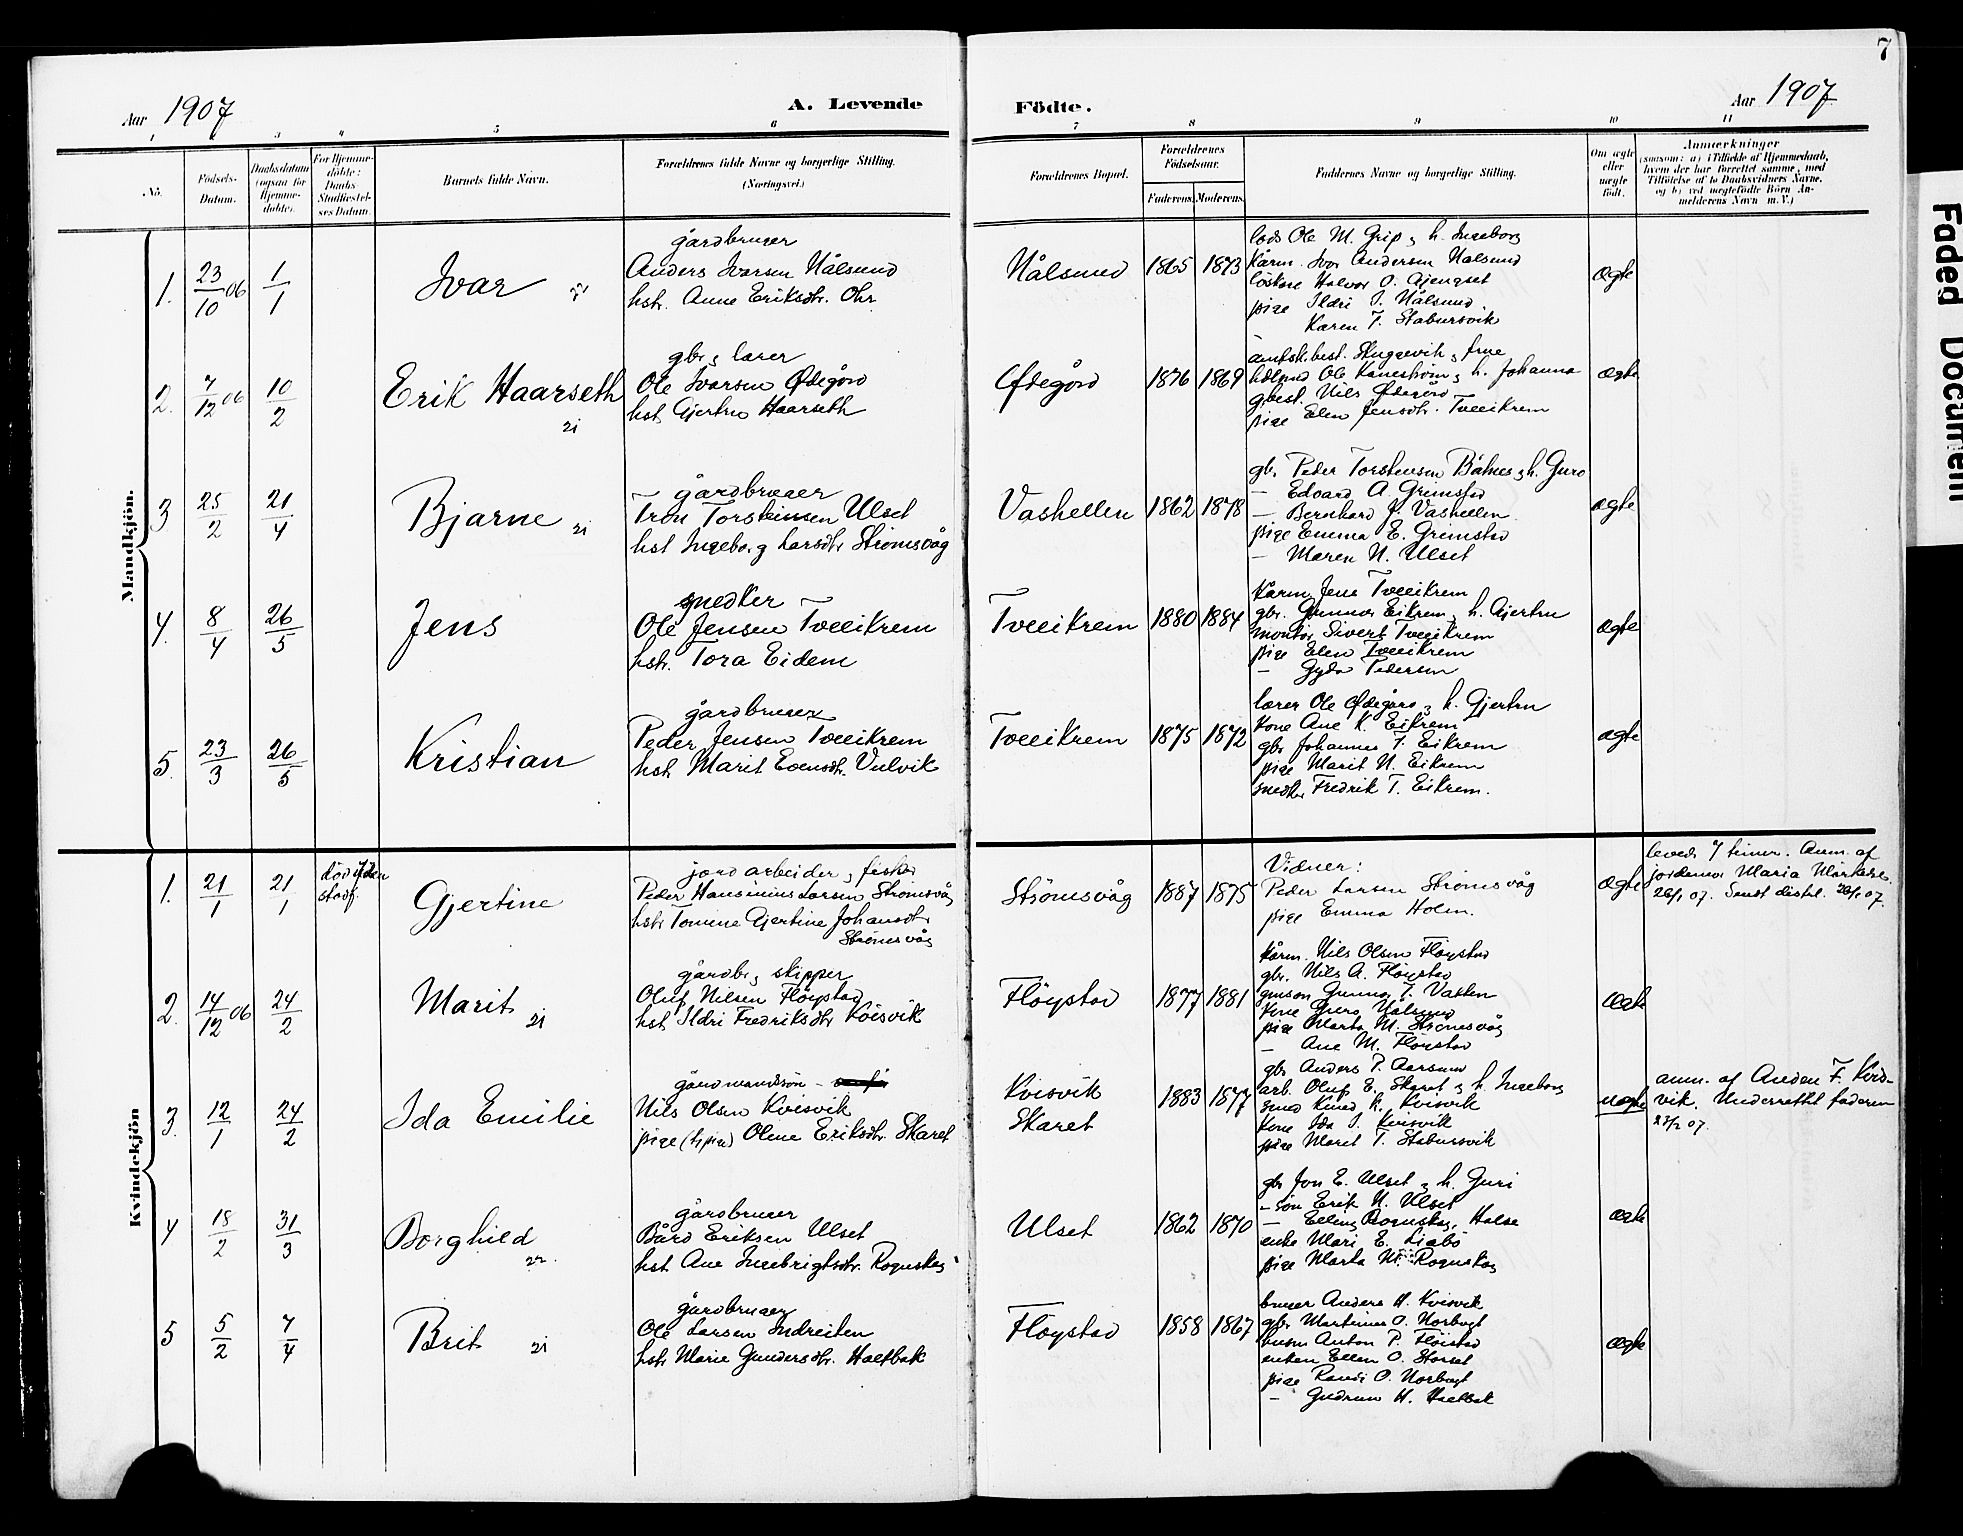 7
Aar 1907
A. Levende Födte.
Aar 1907
1 3 4 5 6 7 8 9 10 11
No.
Födsels-Datum.
Daabsdatum (ogsaa for Hjemme-döbte).
For Hjemme-döbte: Daabs Stadfæstel-ses Datum.
Barnets fulde Navn.
Forældrenes fulde Navne og borgerlige Stilling. (Næringsvei.)
Forældrenes Bopæl.
Forældrenes Födselsaar.
Faderens. Moderens.
Faddernes Navne og borgerlige Stilling.
Om ægte eller uægte födt.
Anmærkninger
(saasom: a) i Tilfælde af Hjemmedaab, hvem der har forrettet samme, med Tilföielse af to Daabsvidners Navne, og b) ved uegtefödte Börn Anmelderens Navn m. V.)
Mandkjön.
1. 23/10 06 1/1 Ivar
gårdbruger
Anders Ivarsen Nålsund
hstr. Anne Eriksdtr. Ohr
Nålsund 1865 1873
lods Ole M. Grip & h. Ingeborg
kårm. Ivar Andersen Nalsund
löskarl Halvor O. Gjengset
pige Ildri I. Nålsund
Karen T. Stabursvik
ægte
2. 7/12 06 10/2 Erik Haarseth
gbr. & lærer
Ole Ivarsen Ødegård
hstr. Gjertru Haarseth
Ødegård 1876 1869
amtsk.best. Skuggevik & frue
Ole Kanestrøm & h. Johanna
gbest. Nils Ødegård
pige Elen Jensdtr. Tveeikrem
ægte
3 25/2 21/4 Bjarne
gårdbruger
Tron Torsteinsen Ulset
hst Ingeborg Larsdtr Strömsvåg
Vashellen 1862 1878
gbr. Peder Torstensen Båtnes & h. Guro
— Edvard A. Grimstad
— Bernhard P. Vashellen
pige Emma E. Grimstad
— Maren N. Ulset
ægte
4. 8/4 26/5 Jens
snedker
Ole Jensen Tveeikrem
hstr. Tora Eidem
Tveeikrem 1880 1884
kårm. Jens Tveeikrem
gbr. Gunnar Eikrem & h. Gjertru
montör Sivert Tveeikrem
pige Elen Tveeikrem
— Gyda Pedersen
ægte
5. 23/3 26/5 Kristian
gårdbruger
Peder Jensen Tveeikrem
hst. Marit Evensdtr. Vulvik
Tveeikrem 1875 1872
lærer Ole Ødegård & h. Gjertru
kone Ane K. Eikrem
gbr. Johannes T. Eikrem
pige Marit N. Eikrem
snedker Fredrik T. Eikrem.
ægte
Kvindekjön
1. 21/1 21/1 död uden stadf. Gjertine
jordarbeider & fisker
Peder Hansinius Larsen Strömsvåg
hstr Tomine Gjertine Johansdtr
Strömsvåg
Strömsvåg 1887 1875
Vidner:
Peder Larsen Strömsvåg
pige Emma Holm.
ægte
levede 7 timer. Anm. af
jordemor Maria
26/1 07. Sendt distrl. 26/1 07.
2. 14/12 06 24/2 Marit
gårdbr. & skipper
Oluf Nilsen Flöystad
hst. Ildri Fredriksdtr Kvisvik
Flöystad 1877 1881
kårm. Nils Olsen Flöystad
gbr. Nils A. Flöystad
gmsön Gunnar T. Vatten
kone Guro Nålsund
pige Marta M. Strömsvåg
— Ane M. Flöystad
ægte
3. 12/1 24/2 Ida Emilie
gårdmandssön –
Nils Olsen Kvisvik
pige Oline Eriksdtr. Skaret
Kvisvik
Skaret
1883 1877
gbr Anders P. Aarsund
arb. Oluf E. Skaret & h. Ingeborg
smed Knud K. Kvisvik
kone Ida I. Kvisvik
pige Marit T. Stabursvik
uægte
anm. af Anders F. Kvis-
vik. Underrettet faderen
4 18/2 31/3 Borghild
gårdbruger
Bård Eriksen Ulset
hst. Ane Ingebrigtsdtr. Rognskog
Ulset 1862 1870
gbr Jon E. Ulset & h. Guri
– sön Erik N. Ulset
— Elling Rognskog, Halse
enke Mari E. Liabö
pige Marta M. Rognskog
ægte
5 5/2 7/4 Brit
gårdbruger
Ole Larsen Indreiten
hstr Marie Gundersdtr. Holtbak
Flöystad 1858 1867
bruger Anders H. Kvisvik
gbr. Martinus O. Norbogt
husm Anton P. Flöistad
enken Ellen O. Storset
pige Randi O. Norbogt
— Gudrun H. Holtbak
ægte
Faded Document